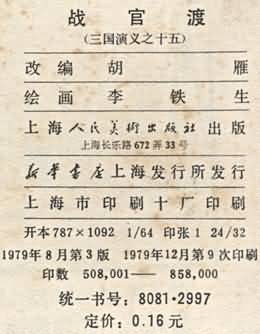 战官渡
（三国演义之十五）
改编 胡雁
绘画 李铁生
上海人民美术出版社出版
上海长乐路672弄33号
新华书店上海发行所发行
上海市印刷十厂印刷
开本787×1092 1/64 印张1 24/32
1979年8月第3版 1979年12月第9次印刷
印数 508,001—— 858,000
统一书号：8081·2997
定价：0.16元